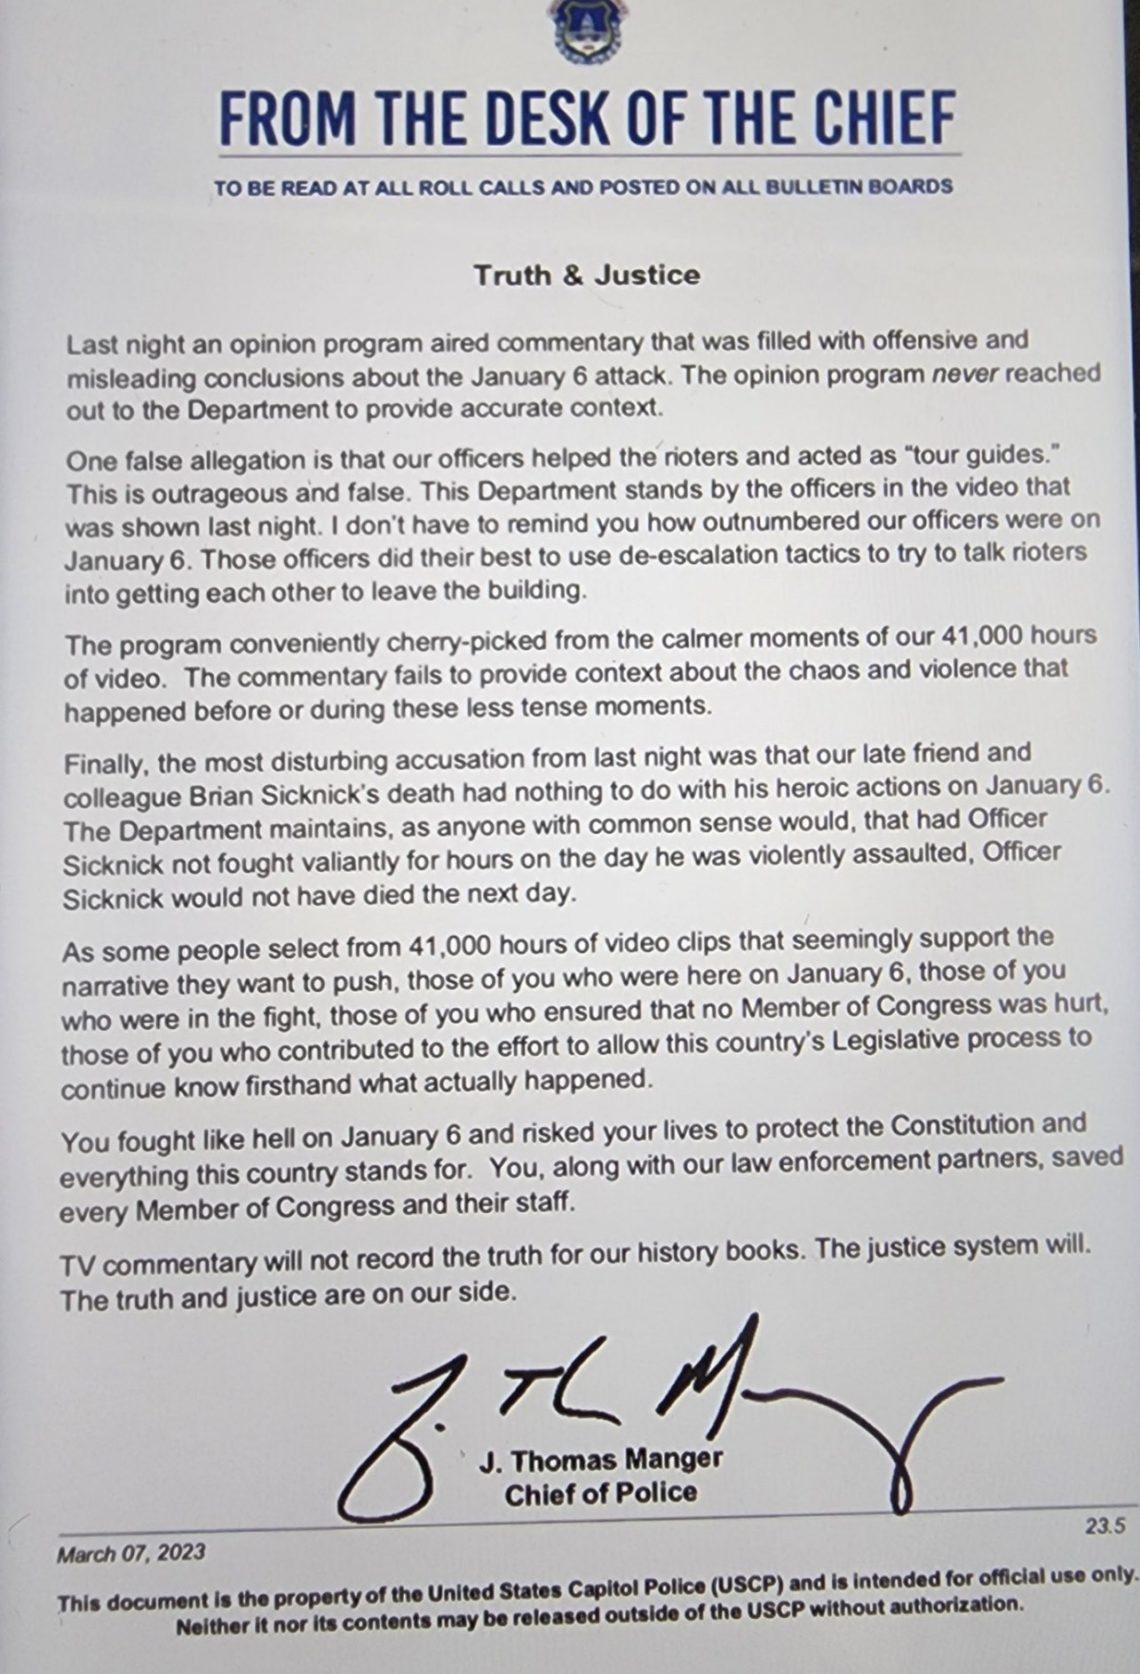 FROM THE DESK OF THE CHIEF
TO BE READ AT ALL ROLL CALLS AND POSTED ON ALL BULLETIN BOARDS
Truth & Justice
Last night an opinion program aired commentary that was filled with offensive and
misleading conclusions about the January 6 attack. The opinion program never reached
out to the Department to provide accurate context.
One false allegation is that our officers helped the rioters and acted as “tour guides.”
This is outrageous and false. This Department stands by the officers in the video that
was shown last night. I don't have to remind you how outnumbered our officers were on
January 6. Those officers did their best to use de-escalation tactics to try to talk rioters
into getting each other to leave the building.
The program conveniently cherry-picked from the calmer moments of our 41,000 hours
of video. The commentary fails to provide context about the chaos and violence that
happened before or during these less tense moments.
Finally, the most disturbing accusation from last night was that our late friend and
colleague Brian Sicknick's death had nothing to do with his heroic actions on January 6.
The Department maintains, as anyone with common sense would, that had Officer
Sicknick not fought valiantly for hours on the day he was violently assaulted, Officer
Sicknick would not have died the next day.
As some people select from 41,000 hours of video clips that seemingly support the
narrative they want to push, those of you who were here on January 6, those of you
who were in the fight, those of you who ensured that no Member of Congress was hurt,
those of you who contributed to the effort to allow this country's Legislative process to
continue know firsthand what actually happened.
You fought like hell on January 6 and risked your lives to protect the Constitution and
everything this country stands for. You, along with our law enforcement partners, saved
every Member of Congress and their staff.
TV commentary will not record the truth for our history books. The justice system will.
The truth and justice are on our side.
J. Thomas Manger
Chief of Police
23.5
March 07, 2023
This document is the property of the United States Capitol Police (USCP) and is intended for official use only.
Neither it nor its contents may be released outside of the USCP without authorization.